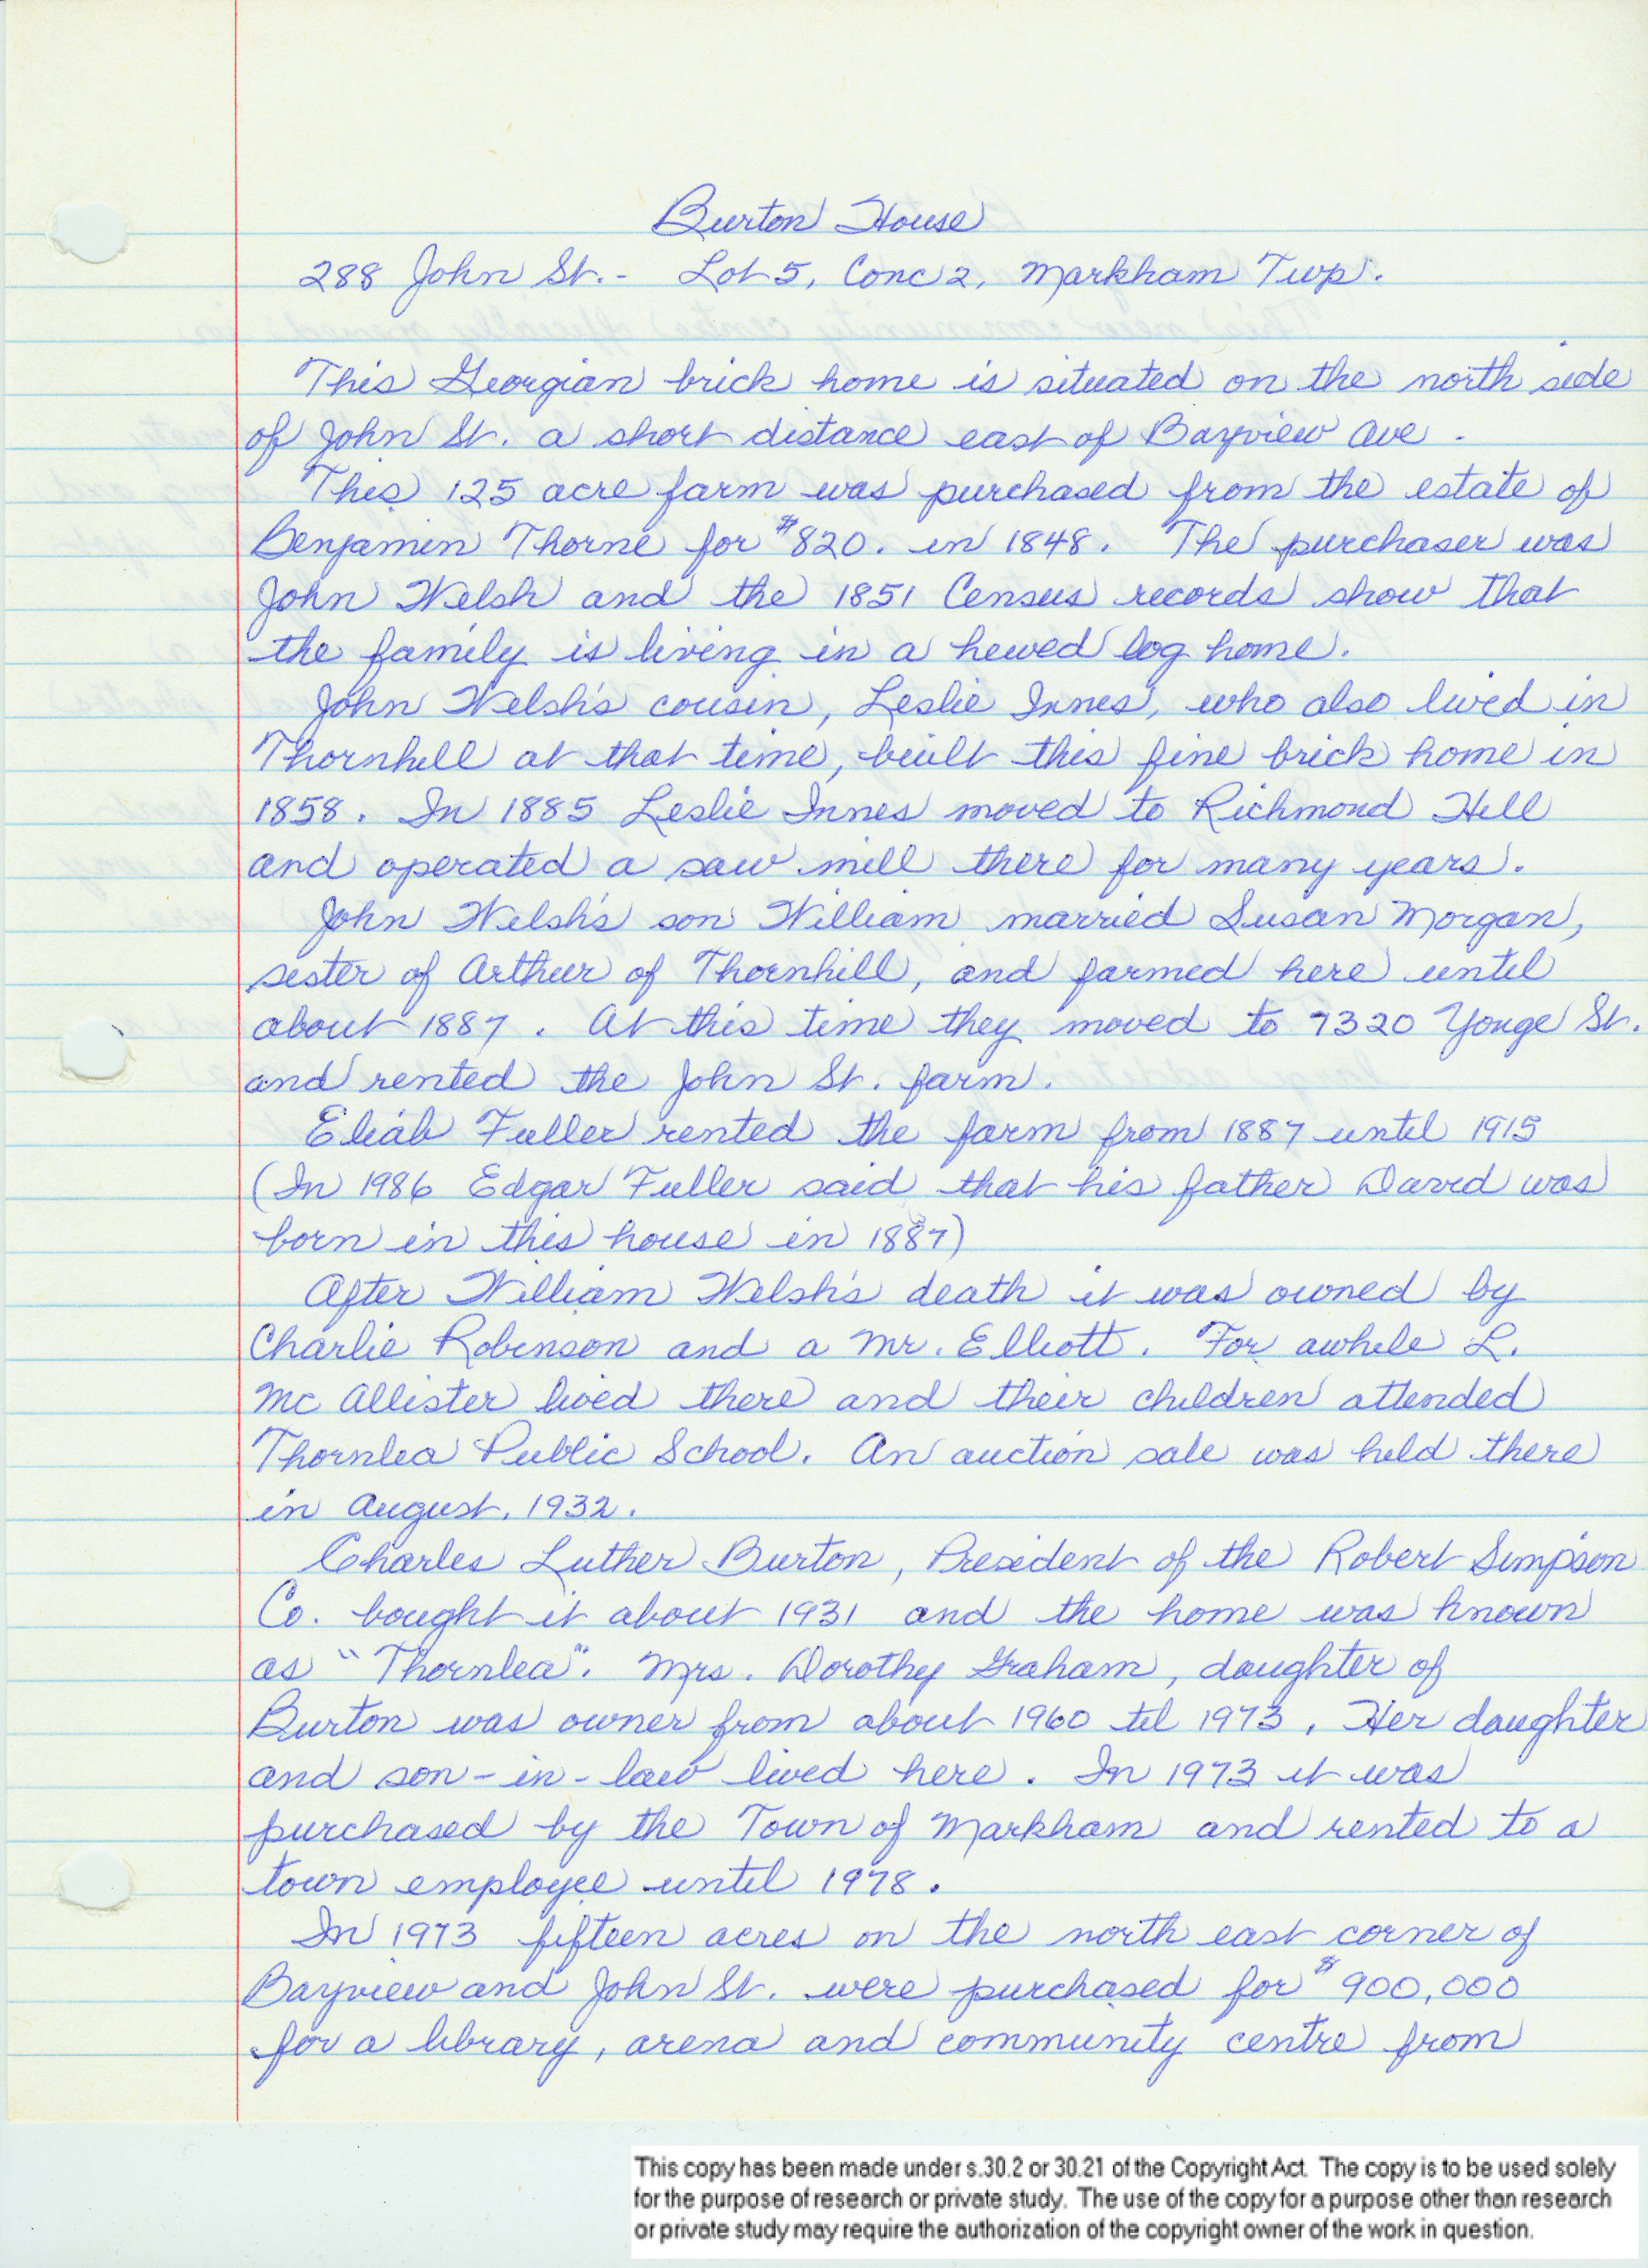 Burton House
288 John St. - Lot 5, Conc 2, Markham Twp.
This Georgian brick home is situated on the north side
of John St. a short distance east of Bayview Ave.
This 125 acre farm was purchased from the estate of
Benjamin Thorne for $820. in 1848. The purchaser was
John Welsh and the 1851 Census records show that
the family is living in a hewed log home.
John Welsh's cousin, Leslie Innes, who also lived in
Thornhill at that time, built this fine brick home in
1858. In 1885 Leslie Innes moved to Richmond Hill
and operated a saw mill there for many years.
John Welsh's son William married Susan Morgan,
sister of Arthur of Thornhill, and farmed here until
about 1887. At this time they moved to 7320 Yonge St.
and rented the John St. farm.
Eliab Fuller rented the farm from 1887 until 1915
(In 1986 Edgar Fuller said that his father David was
born in this house in 1887)
After William Welsh's death it was owned by
Charlie Robinson and a Mr. Elliott. For awhile L.
McAllister lived there and their children attended
Thornlea Public School. An auction sale was held there
in August, 1932.
Charles Luther Burton, President of the Robert Simpson
Co. bought it about 1931 and the home was known
as "Thornlea". Mrs. Dorothy Graham, daughter of
Burton was owner from about 1960 til 1973. Her daughter
and son-in-law lived here. In 1973 it was
purchased by the Town of Markham and rented to a
town employee until 1978.
In 1973 fifteen acres on the north east corner of
Bayview and John St. were purchased for $900,000
for a library, arena and community centre from
This copy has been made under s.30.2 or 30.21 of the Copyright Act. The copy is to be used solely
for the purpose of research or private study. The use of the copy for a purpose other than research
or private study may require the authorization of the copyright owner of the work in question.